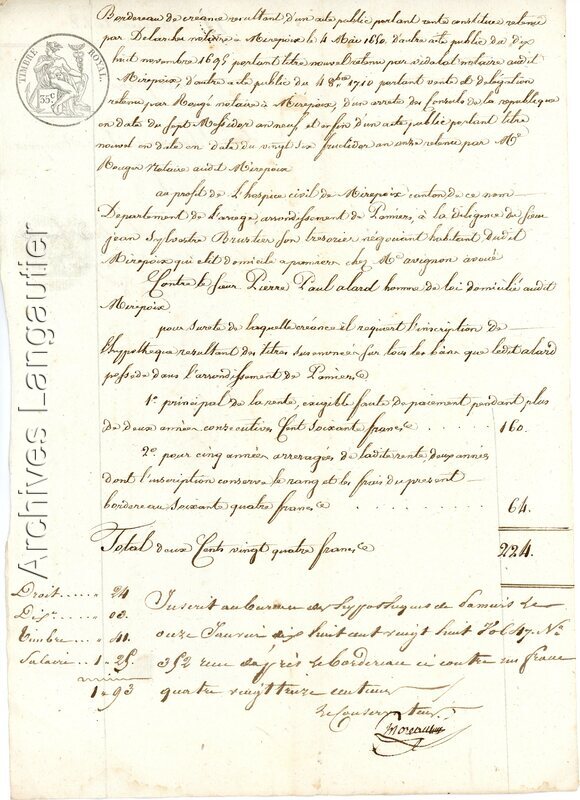 TIMBRE ROYAL.
35c
Bordereau de créance resultant d'un acte public portant rente constituée retenu
par Delarche notaire a Mirepoix le 4 Mai 1680. d'autre acte public du dix
huit novembre 1695 portant titre nouvel retenu par vidalat notaire audit
Mirepoix, d'autre acte public du 4 1710 portant vente et délégation
retenu par Rouge notaire a Mirepoix, d'un arrete des Consuls de la republique
en date du sept Messidor an neuf, et enfin d'un acte public portant titre
nouvel en date en date du vingt six fructidor an onze retenu par Me
Rouger Notaire audit Mirepoix
au profit de L'hospice civil de Mirepoix canton de ce nom
Departement de l'ariege, arrondissement de Pamiers, à la diligence du sieur
jean Sylvestre Brustier son trésorier négociant habitant dudit
Mirepoix qui elit domicile a pamiers chez Me avignon avoué
Contre le sieur Pierre Paul alard homme de loi domicilié audit
Mirepoix
pour sureté de laquelle créance il requiert l'inscription de
l'hypotheque resultant des titres susenoncés sur tous les biens que ledit alard
possède dans l'arrondissement de Pamiers
1º principal de la rente, exigible faute de paiement pendant plus
de deux années consecutives Cent soixant francs 160.
2º pour cinq années arreragés de ladite rente deux années
dont l'inscription conserve le rang et les frais du present
bordereau soixant quatre francs 64.
Total deux Cents vingt quatre francs 224.
Droit 24
08.
Timbre 41.
Salaire 1 25.
1 93
Inscrit au bureau des hypotheques de Pamiers le
onze Janvier dix huit cent vingt huit Vol 47. No
352 reçu d'après le bordereau ci contre un franc
quatre vingt treize centimes
Le Conservateur
Moreau
Archives Langautier